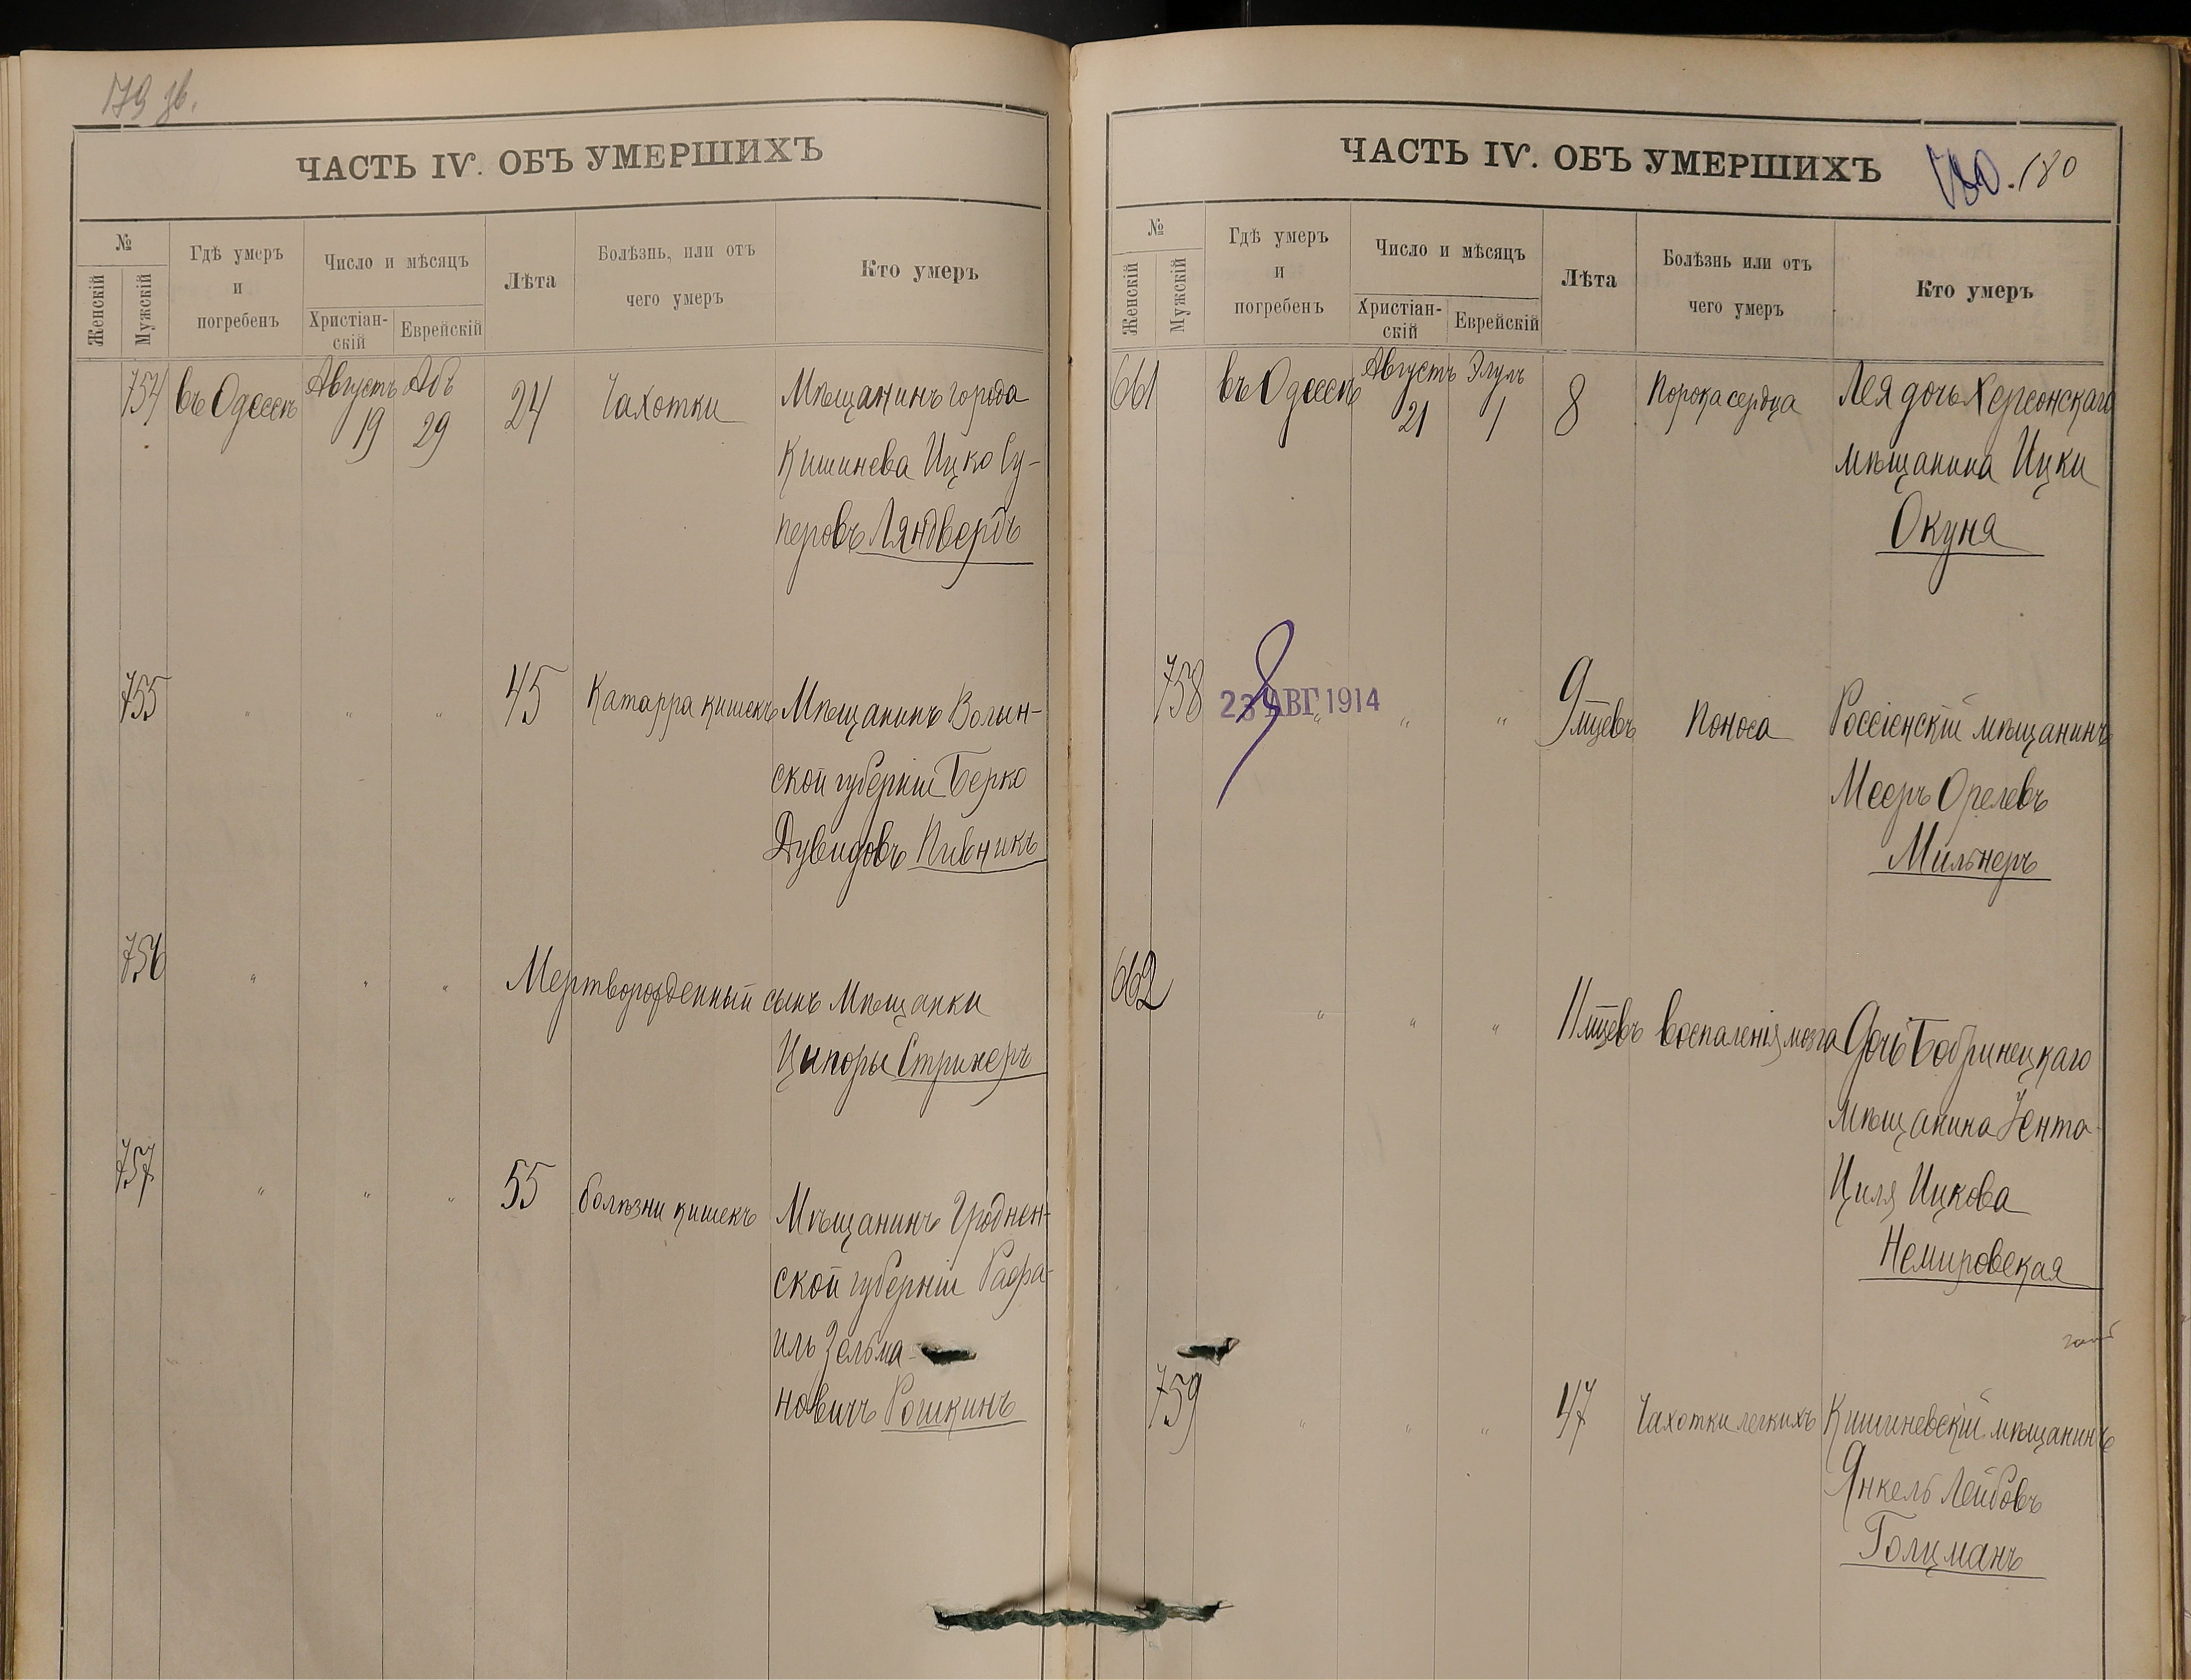 179 зв.
ЧАСТЬ IV. ОБЪ УМЕРШИХЪ
№
Женскій
Мужскій
Гдѣ умеръ
и
погребенъ
Число и мѣсяцъ
Христіан-
скій
Еврейскій
Лѣта
Болѣзнь, или отъ
чего умеръ
Кто умеръ
754 въ Одессѣ Августъ 19 Абъ 29 24 Чахотки Мѣщанинъ города
Кишинева Ицко Су-
перовъ Ляндвербъ
755 " " " 45 Катарра кишекъ Мѣщанинъ Волын-
ской губерніи Берко
Дувидовъ Пивникъ
756 " " " Мертворожденный сынъ Мѣщанки
Ципоры Стрихеръ
757 " " " 55 болѣзни кишекъ Мѣщанинъ Гроднен-
ской губерніи Рафа-
илъ Зельма-
новичъ Рошкинъ
ЧАСТЬ IV. ОБЪ УМЕРШИХЪ
180. 180
№
Женскій
Мужскій
Гдѣ умеръ
и
погребенъ
Число и мѣсяцъ
Христіан-
скій
Еврейскій
Лѣта
Болѣзнь или отъ
чего умеръ
Кто умеръ
661 въ Одессѣ Августъ 21 Элулъ 1 8 Порока сердца Лея дочь Херсонскаго
мѣщанина Ицки
Окуня
758 23 АВГ 1914 " " " 9 мцевъ Поноса Россіенскій мѣщанинъ
Мееръ Орелевъ
Мильнеръ
662 " " " 11 мцевъ воспаленія мозга Дочь Бобринецкаго
мѣщанина Гента-
Циля Ицкова
Немировская
759 " " " 47 Чахотки легкихъ Кишиневскій мѣщанинъ
Янкель Лейбовъ
Голцманъ